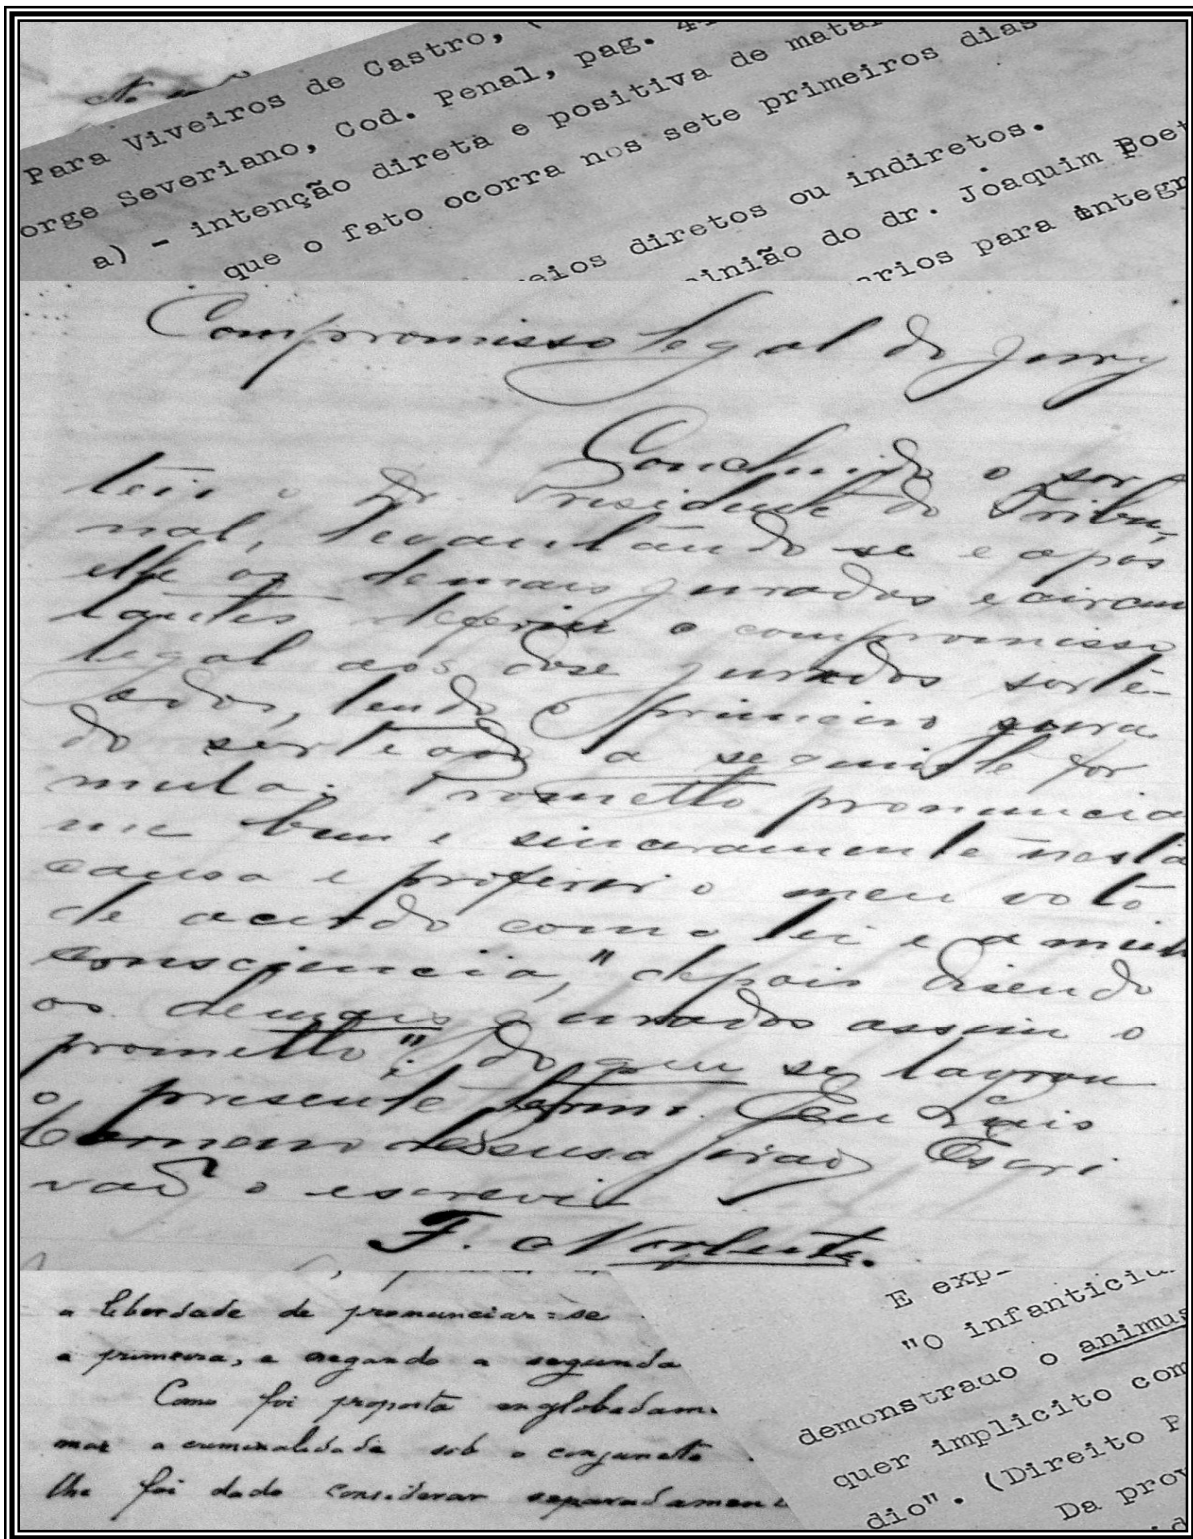 Para Viveiros de Castro, (
orge Severiano, Cod. Penal, pag. 41
a) - intenção direta e positiva de matar
que o fato ocorra nos sete primeiros dias
eios diretos ou indiretos.
pinião do dr. Joaquim Poet
arios para integr
Compromisso legal do jury
Concluido o sor
teio o dr. Presidente do Tribu
nal, levantando se e apos
elle os demais jurados e circum
tantes deferiu o compromisso
legal aos dose jurados sorte-
ados, lendo o primeiro jura
do sorteado a seguinte for
mula. Prometto pronuncia
me bem e sinceramente nesta
causa e proferir o meu voto
de acurdo com a lei e a minh
consciencia," depois disendo
os demais jurados assim o
prometto". do que se lavrou
o presente termo. Eu Luis
Escri
vaõ o escrevi
F.
a liberdade de pronunciar=se
a primeira, e negando a segunda
Como foi proposta englobadam
mar a criminalidade sob o conjuncto
lhe foi dado considerar separadamen
E exp
"O infanticid
demonstrado o animus
quer implicito com
dio". (Direito P
Da prov